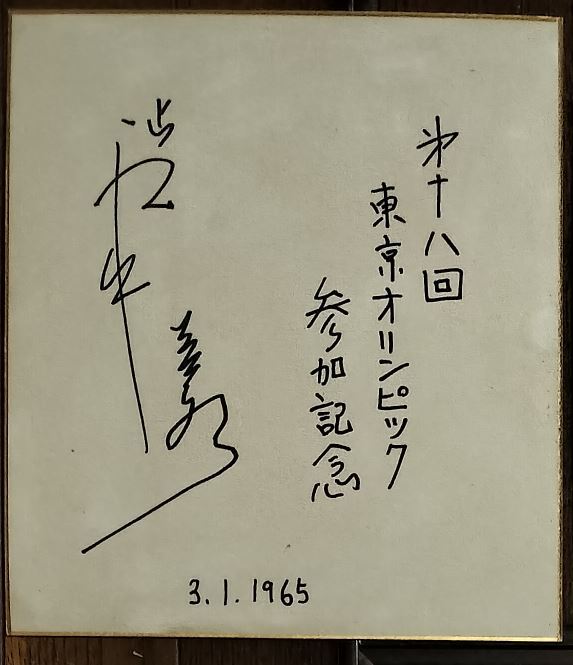 第十八回
東京オリンピック
参加記念
3.1.1965